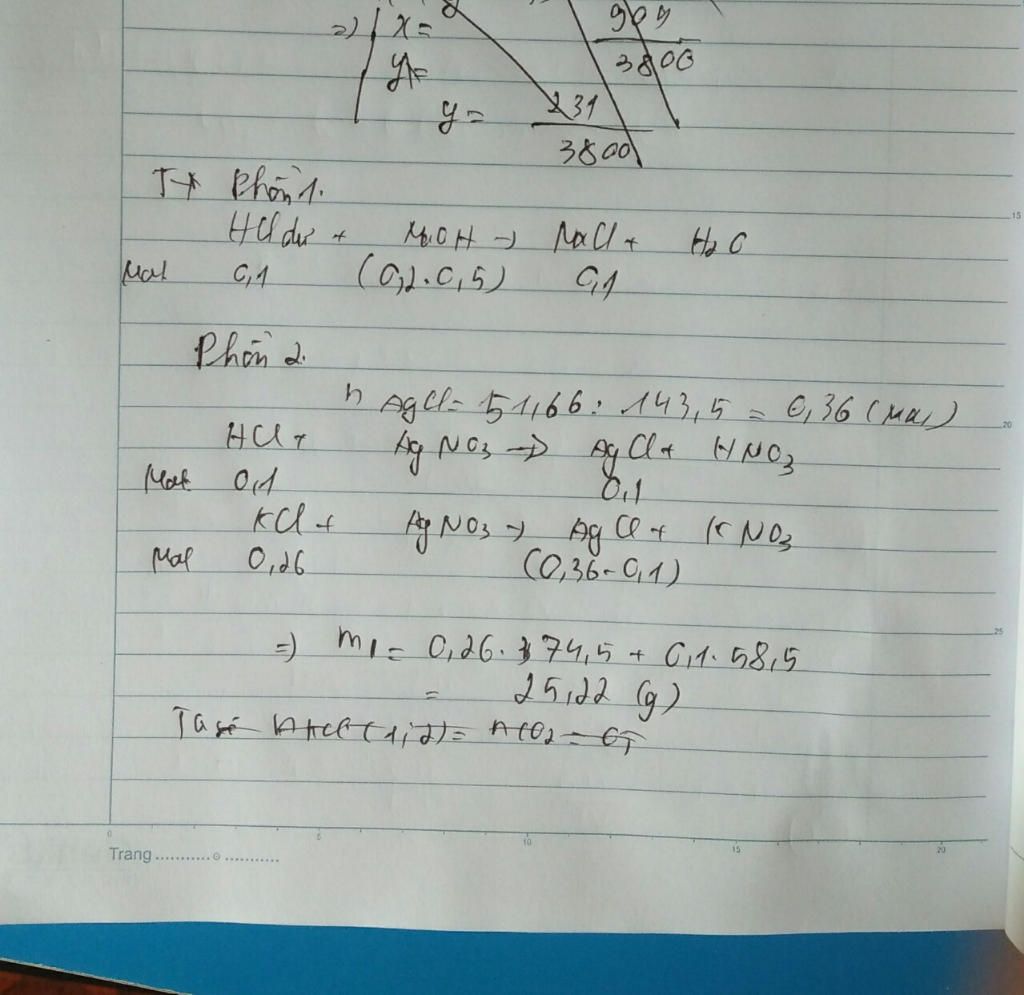 =) x =
909
3800
y =
y = 231
3800
T+ Phần 1.
HCl dư + NaOH -> NaCl + H2O
Mol 0,1 (0,2.0,5) 0,1
Phần 2.
n AgCl = 51,66 : 143,5 = 0,36 (mol)
HCl + AgNO3 -> AgCl + HNO3
Mol 0,1 0,1
KCl + AgNO3 -> AgCl + KNO3
Mol 0,26 (0,36-0,1)
=) m1 = 0,26. 74,5 + 0,1. 58,5
= 25,22 (g)
Ta có nHCl (1,2) = nCO2 =
Trang
0 5 10 15 20
15
20
25